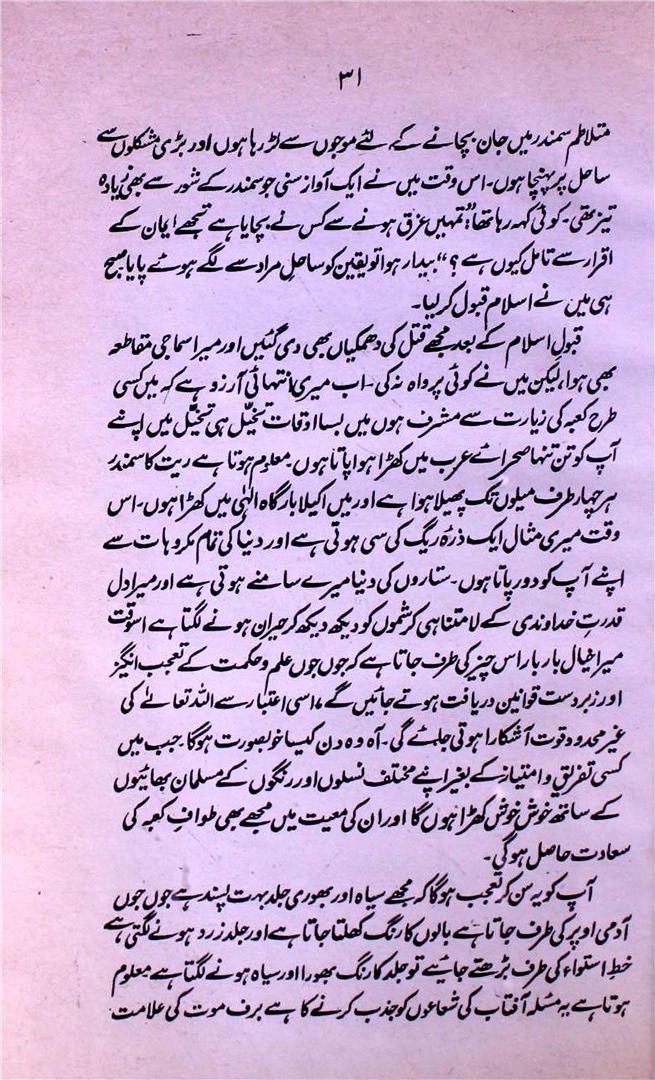 ۳۱
متلاطم سمندر میں جان بچانے کے لئے موجوں سے لڑ رہا ہوں اور بڑی مشکلوں سے
ساحل پر پہنچا ہوں۔ اس وقت میں نے ایک آواز سنی جو سمندر کے شور سے بھی زیادہ
تیز تھی۔ کوئی کہہ رہا تھا "تمہیں غرق ہونے سے کس نے بچایا ہے تجھے ایمان کے
اقرار سے تامل کیوں ہے؟" بیدار ہوا تو یقین کو ساحلِ مراد سے لگے ہوئے پایا صبح
ہی میں نے اسلام قبول کر لیا۔
قبولِ اسلام کے بعد مجھے قتل کی دھمکیاں بھی دی گئیں اور میرا سماجی مقاطعہ
بھی ہوا، لیکن میں نے کوئی پرواہ نہ کی۔ اب میری انتہائی آرزو ہے کہ میں کسی
طرح کعبہ کی زیارت سے مشرف ہوں میں بسا اوقات تخیّل ہی تخیّل میں اپنے
آپ کو تن تنہا صحرائے عرب میں کھڑا ہوا پاتا ہوں۔ معلوم ہوتا ہے ریت کا سمندر
ہر چہار طرف میلوں تک پھیلا ہوا ہے اور میں اکیلا بارگاہ الٰہی میں کھڑا ہوں۔ اس
وقت میری مثال ایک ذرۂ ریگ کی سی ہوتی ہے اور دنیا کی تمام مکروہات سے
اپنے آپ کو دور پاتا ہوں۔ ستاروں کی دنیا میرے سامنے ہوتی ہے اور میرا دل
قدرتِ خداوندی کے لامتناہی کرشموں کو دیکھ دیکھ کر حیران ہونے لگتا ہے اسوقت
میرا خیال بار بار اس چیز کی طرف جاتا ہے کہ جوں جوں علم و حکمت کے تعجب انگیز
اور زبردست قوانین دریافت ہوتے جائیں گے، اسی اعتبار سے اللہ تعالےٰ کی
غیر محدود قوت آشکارا ہوتی جائے گی۔ آہ وہ دن کیسا خوبصورت ہوگا۔ جب میں
کسی تفریق و امتیاز کے بغیر اپنے مختلف نسلوں اور رنگوں کے مسلمان بھائیوں
کے ساتھ خوش خوش کھڑا ہوں گا اور ان کی معیت میں مجھے بھی طوافِ کعبہ کی
سعادت حاصل ہوگی۔
آپ کو یہ سن کر تعجب ہوگا کہ مجھے سیاہ اور بھوری جلد بہت پسند ہے جوں جوں
آدمی اوپر کی طرف جاتا ہے بالوں کا رنگ کھلتا جاتا ہے اور جلد زرد ہونے لگتی ہے
خطِ استواء کی طرف بڑھتے جائیے تو جلد کا رنگ بھورا اور سیاہ ہونے لگتا ہے معلوم
ہوتا ہے یہ مسئلہ آفتاب کی شعاعوں کو جذب کرنے کا ہے برف موت کی علامت